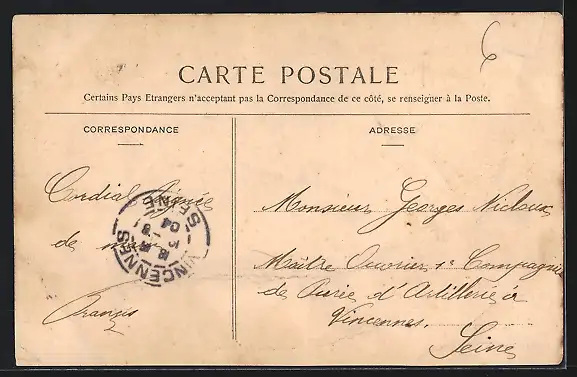 CARTE POSTALE
Certains Pays Etrangers n'acceptent pas la Correspondance de ce côté, se renseigner à la Poste.
CORRESPONDANCE
ADRESSE
Cordial
de
Monsieur Georges Nicloux
Maître Ouvrier 1e Compagnie
de d'Artillerie à
Vincennes.
Seine
VINCENNES
SEINE
04